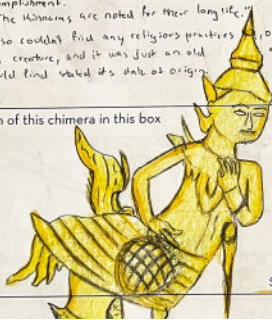 omplishment.
The Kinnaras are noted for their long life."
so couldn't find any religious practices
creature, and it was just an old
uld find stated its date of origin.
n of this chimera in this box